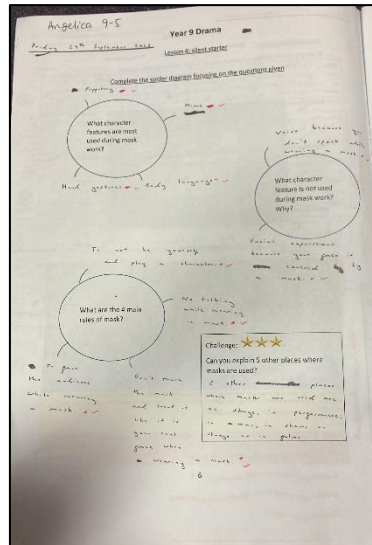 Angelica 9-5
Year 9 Drama
Friday September
Lesson 4: silent starter
Complete the spider diagram focusing on the questions given
Mime
What character
features are most
used during mask
work?
Hand gestures
Body language
Voice because you
don't speak while
wearing a mask
What character
feature is not used
during mask work?
Why?
Facial expressions
because your face is
covered by
a mask.
To not be yourself
and play a character.
No talking
while wearing
a mask
What are the 4 main
rules of mask?
To face
the audience
while wearing
a mask
Don't touch
the mask
and treat it
like it is
your real
face when
wearing a mask.
Challenge:
Can you explain 5 other places where
masks are used?
5 other places
where masks are used are
on stage, in performances,
in shows on
stage or in
6